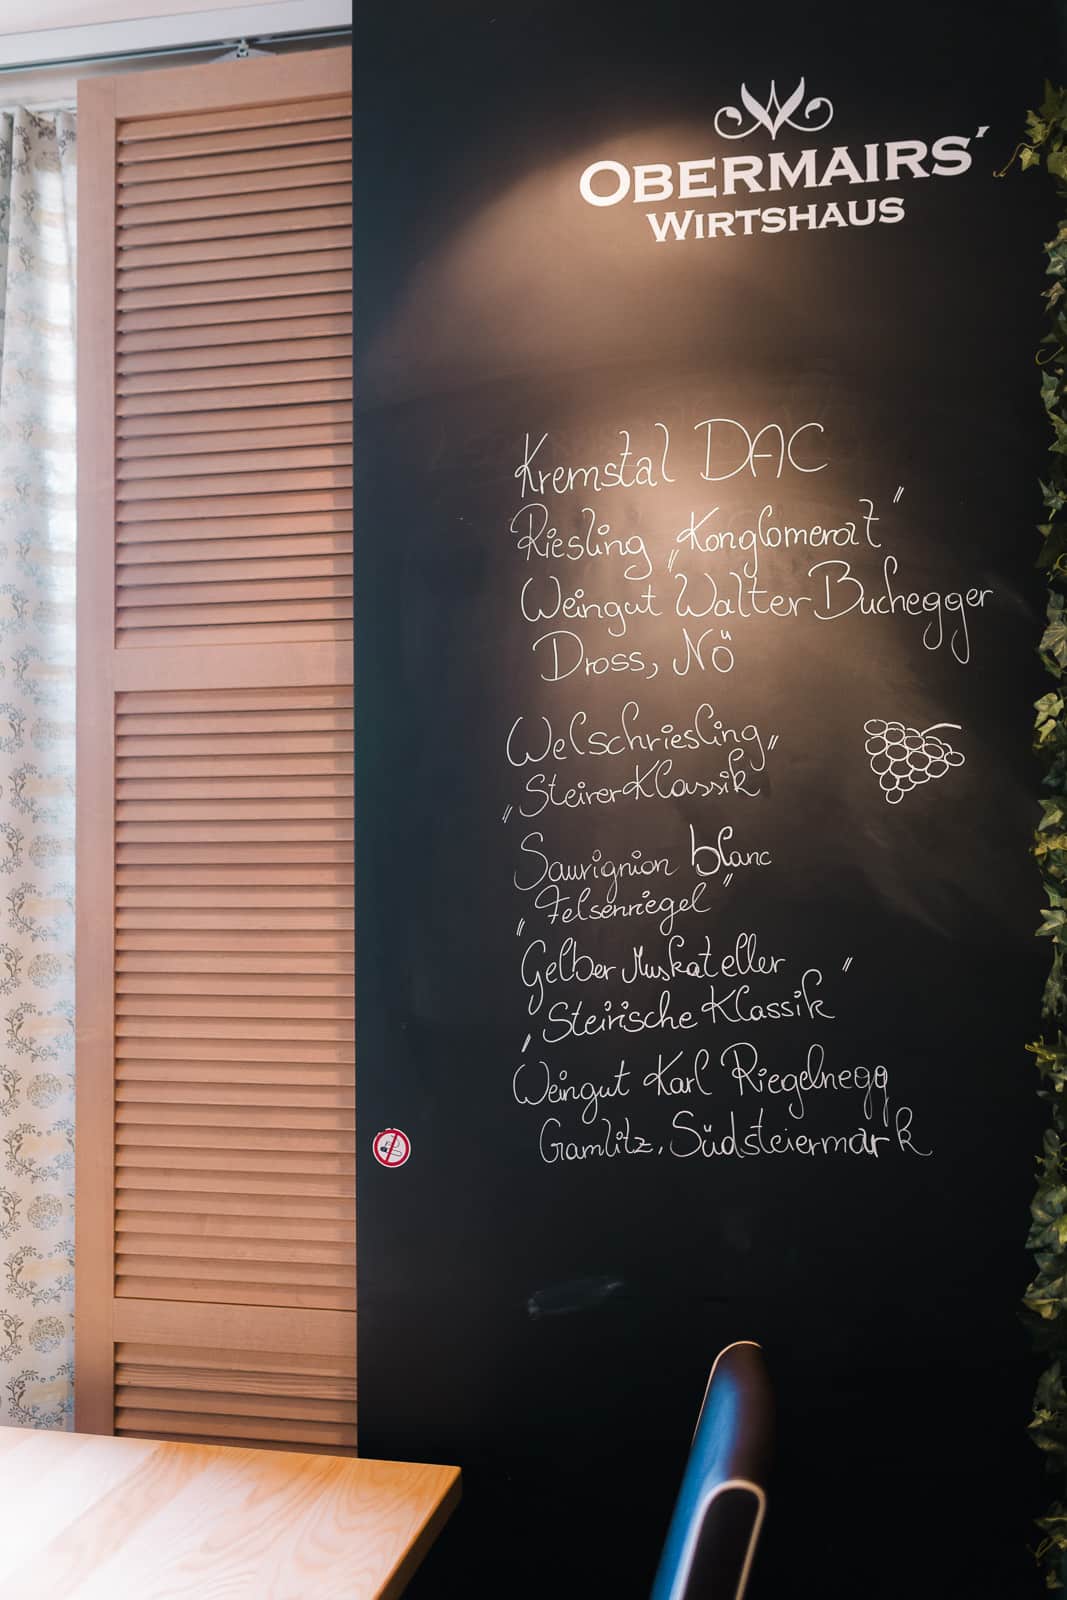 OBERMAIRS´
WIRTSHAUS
Kremstal DAC
Riesling „Konglomerat"
Weingut Walter Buchegger
Dross, NÖ
Welschriesling„
„SteirerKlassik
Sauvignion blanc
„Felsenriegel"
Gelber Muskateller
„Steirische Klassik"
Weingut Karl Riegelnegg
Gamlitz, Südsteiermark